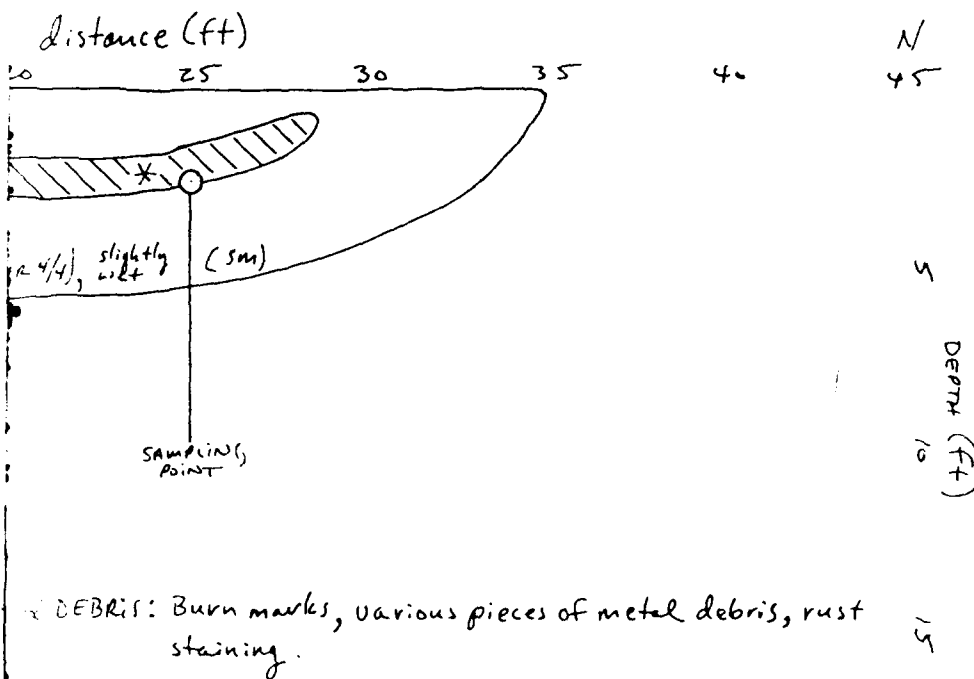 distance (ft)
N
20 25 30 35 40 45
*
R 4/4), slightly wet (SM)
5
DEPTH (ft)
SAMPLING POINT
10
* DEBRIS: Burn marks, various pieces of metal debris, rust
staining.
15